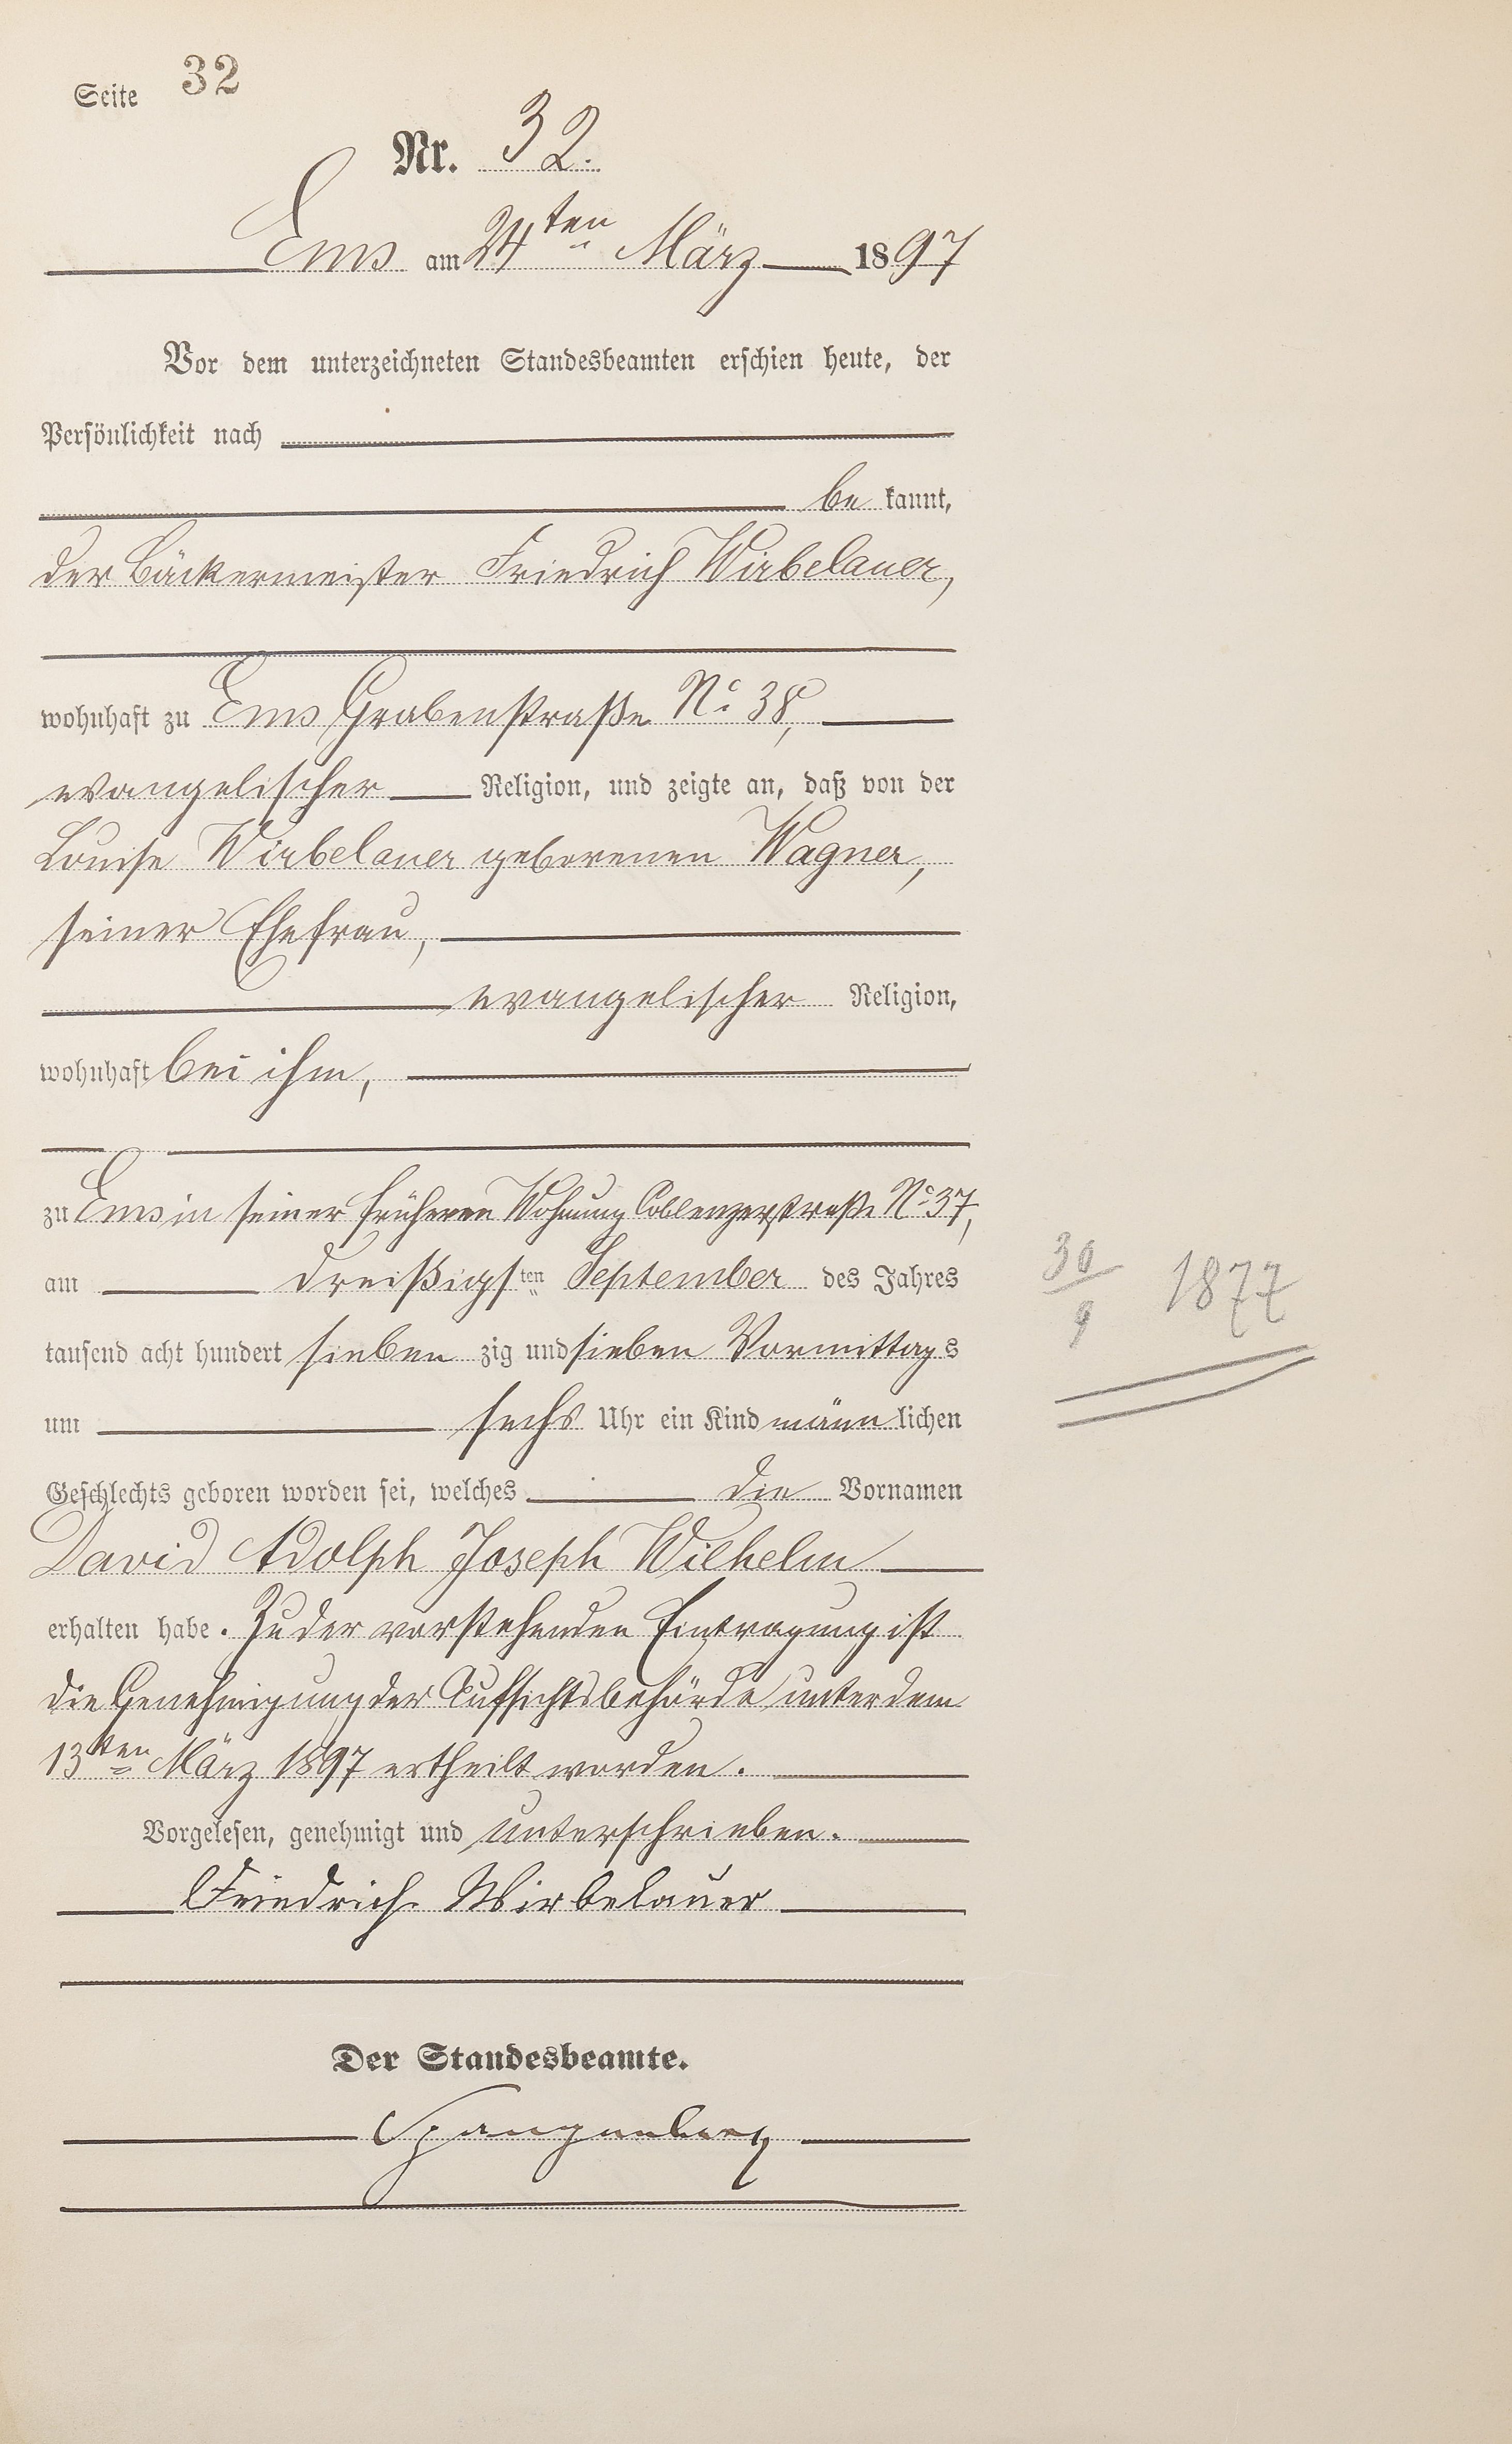 Seite 32
Nr. 32.
Ems am 24ten März 1897
Vor dem unterzeichneten Standesbeamten erschien heute, der
Persönlichkeit nach
be kannt,
der Bäckermeister Friedrich Wirbelauer,
wohnhaft zu Ems Grabenstraße No. 38,
evangelischer Religion, und zeigte an, daß von der
Louise Wirbelauer geborenen Wagner,
seiner Ehefrau,
evangelischer Religion,
wohnhaft bei ihm,
zu Ems in seiner früheren Wohnung Coblenzerstraße No. 37,
am dreißigsten September des Jahres
tausend acht hundert sieben zig und sieben Vormittags
um sechs Uhr ein Kind männlichen
Geschlechts geboren worden sei, welches die Vornamen
David Adolph Joseph Wilhelm
erhalten habe. Zu der vorstehenden Eintragung ist
die Genehmigung der Aufsichtsbehörde unter dem
13ten März 1897 ertheilt worden.
Vorgelesen, genehmigt und unterschrieben.
Friedrich Wirbelauer
Der Standesbeamte.
Spangenberg
30/9 1877